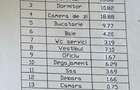 3 Dormitor 10.82
4 Camera de zi 18.88
5 Bucatarie 9.77
6 Baie 4.26
7 Wc servici 3.19
8 Vestibul 7.10
9 Oficiu 1.67
10 Degajament 6.29
11 Sas 3.69
12 Debara 1.66
13 Camara 0.75